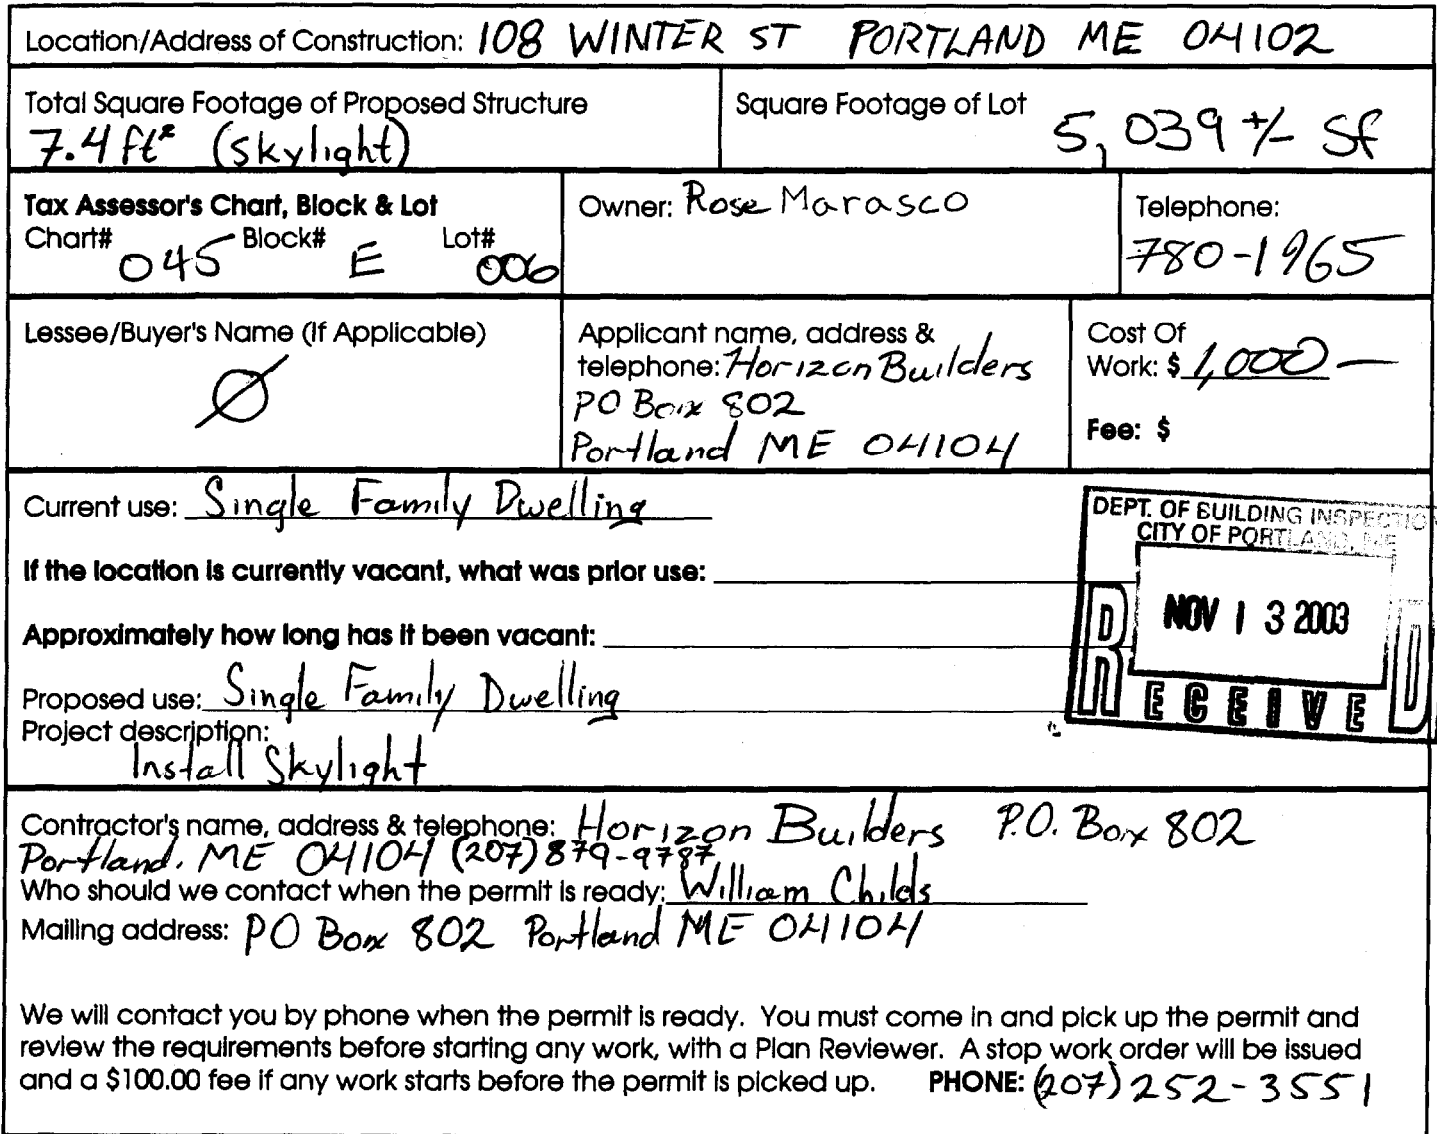 Location/Address of Construction: 108 WINTER ST PORTLAND ME 04102
Total Square Footage of Proposed Structure
7.4 ft² (skylight)
Square Footage of Lot
5,039 +/- Sf
Tax Assessor's Chart, Block & Lot
Chart# 045 Block# E Lot# 006
Owner: Rose Marasco
Telephone:
780-1965
Lessee/Buyer's Name (If Applicable)
Ø
Applicant name, address &
telephone: Horizon Builders
PO Box 802
Portland ME 04104
Cost Of
Work: $ 1,000 —
Fee: $
Current use: Single Family Dwelling
If the location is currently vacant, what was prior use:
Approximately how long has it been vacant:
Proposed use: Single Family Dwelling
Project description:
Install Skylight
DEPT. OF BUILDING INSPECTIO
CITY OF PORTLAND, ME
NOV 13 2003
RECEIVED
Contractor's name, address & telephone: Horizon Builders P.O. Box 802
Portland. ME 04104 (207) 879-9787
Who should we contact when the permit is ready: William Childs
Mailing address: PO Box 802 Portland ME 04104
We will contact you by phone when the permit is ready. You must come in and pick up the permit and
review the requirements before starting any work, with a Plan Reviewer. A stop work order will be issued
and a $100.00 fee if any work starts before the permit is picked up. PHONE: (207) 252-3551